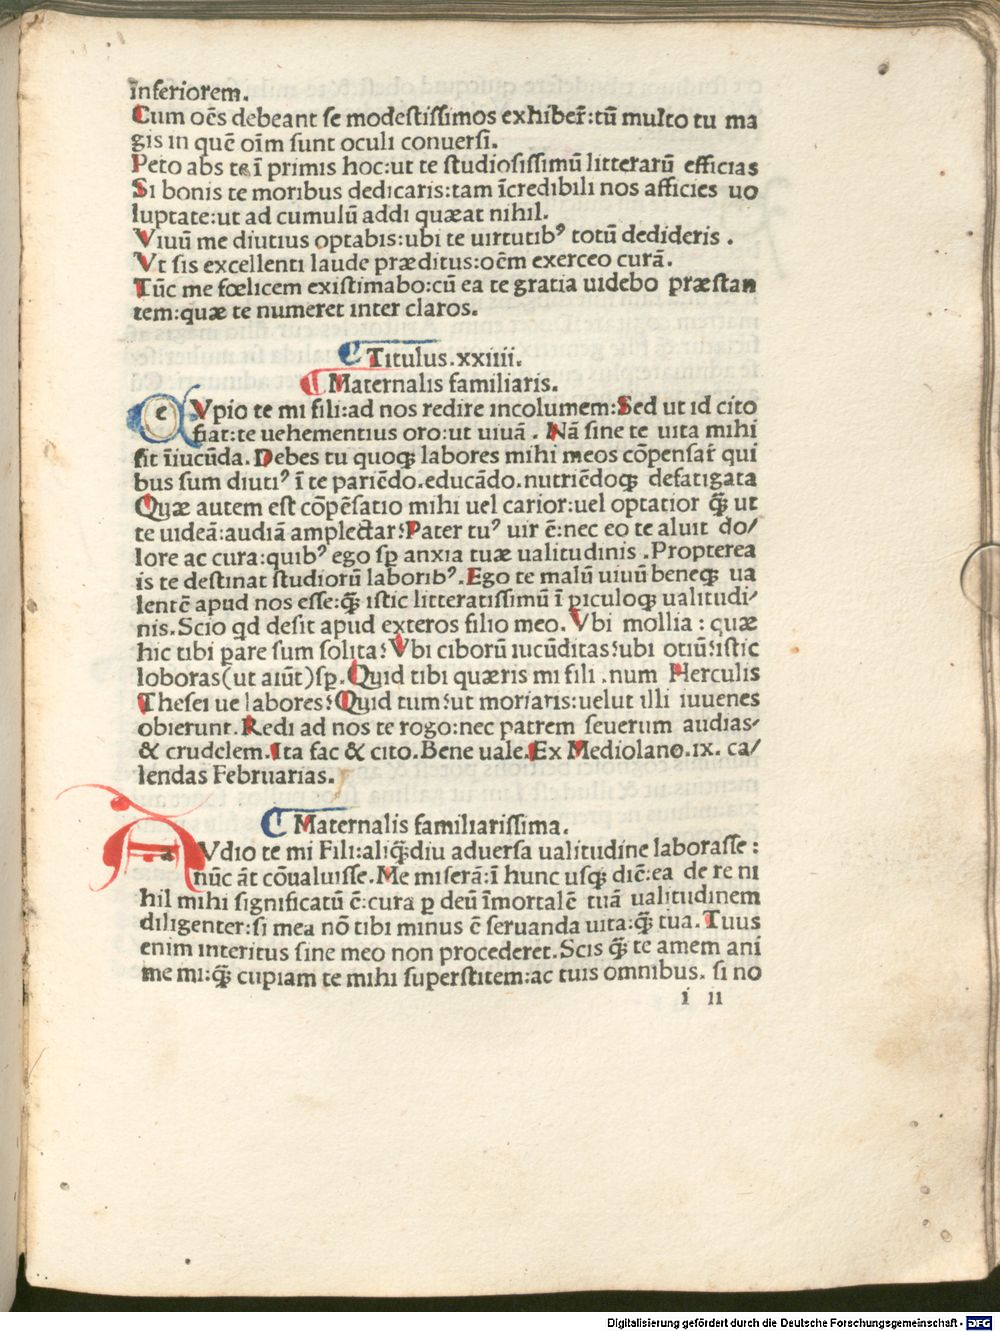 īnferiorem.
Cum oēs debeant se modestissimos exhiber̄:tū multo tu ma
gis in quē oīm sunt oculi conuersi.
Peto abs te ī primis hoc:ut te studiosissimū litterarū efficias
Si bonis te moribus dedicaris:tam īcredibili nos afficies uo
luptate:ut ad cumulū addi quæat nihil.
Viuū me diutius optabis:ubi te uirtutibꝰ totū dedideris .
Vt sis excellenti laude præditus:oēm exerceo curā.
Tūc me fœlicem existimabo:cū ea te gratia uidebo præstan
tem:quæ te numeret inter claros.
Titulus.xxiiii.
Maternalis familiaris.
e Vpio te mi fili:ad nos redire incolumem:Sed ut id cito
fiat:te uehementius oro:ut uiuā . Nā sine te uita mihi
sit īiucūda. Debes tu quoqꝫ labores mihi meos cōpensar̄ qui
bus sum diutiꝰ ī te pariēdo.educādo.nutriēdoqꝫ defatigata
Quæ autem est cōpēsatio mihi uel carior:uel optatior q̄ꝫ ut
te uideā:audiā amplectar?Pater tuꝰ uir ē:nec eo te aluit do/
lore ac cura:quibꝰ ego sꝑ anxia tuæ ualitudinis .Propterea
is te destinat studiorū laboribꝰ.Ego te malū uiuū beneqꝫ ua
lentē apud nos esse:q̄ꝫ istic litteratissimū ī ꝑiculoqꝫ ualitudi/
nis.Scio qd desit apud exteros filio meo. Vbi mollia : quæ
hic tibi ꝑare sum solita?Vbi ciborū iucūditas?ubi otiū?istic
loboras(ut aiūt)sꝑ.Quid tibi quæris mi fili .num Herculis
Thesei ue labores?Quid tum?ut moriaris:uelut illi iuuenes
obierunt.Redi ad nos te rogo:nec patrem seuerum audias/
& crudelem.Ita fac & cito.Bene uale.Ex Mediolano.ix. ca/
lendas Februarias.
Maternalis familiarissima.
a Vdio te mi Fili:aliq̄ꝫdiu aduersa ualitudine laborasse :
nūc āt cōualuisse.Me miserā:ī hunc usqꝫ diē:ea de re ni
hil mihi significatū ē:cura ꝑ deū īmortalē tuā ualitudinem
diligenter:si mea nō tibi minus ē seruanda uita:q̄ꝫ tua.Tuus
enim interitus sine meo non procederet.Scis q̄ꝫ te amem ani
me mi:q̄ꝫ cupiam te mihi superstitem:ac tuis omnibus. si no
i ii
Digitalisierung gefördert durch die Deutsche Forschungsgemeinschaft - DFG